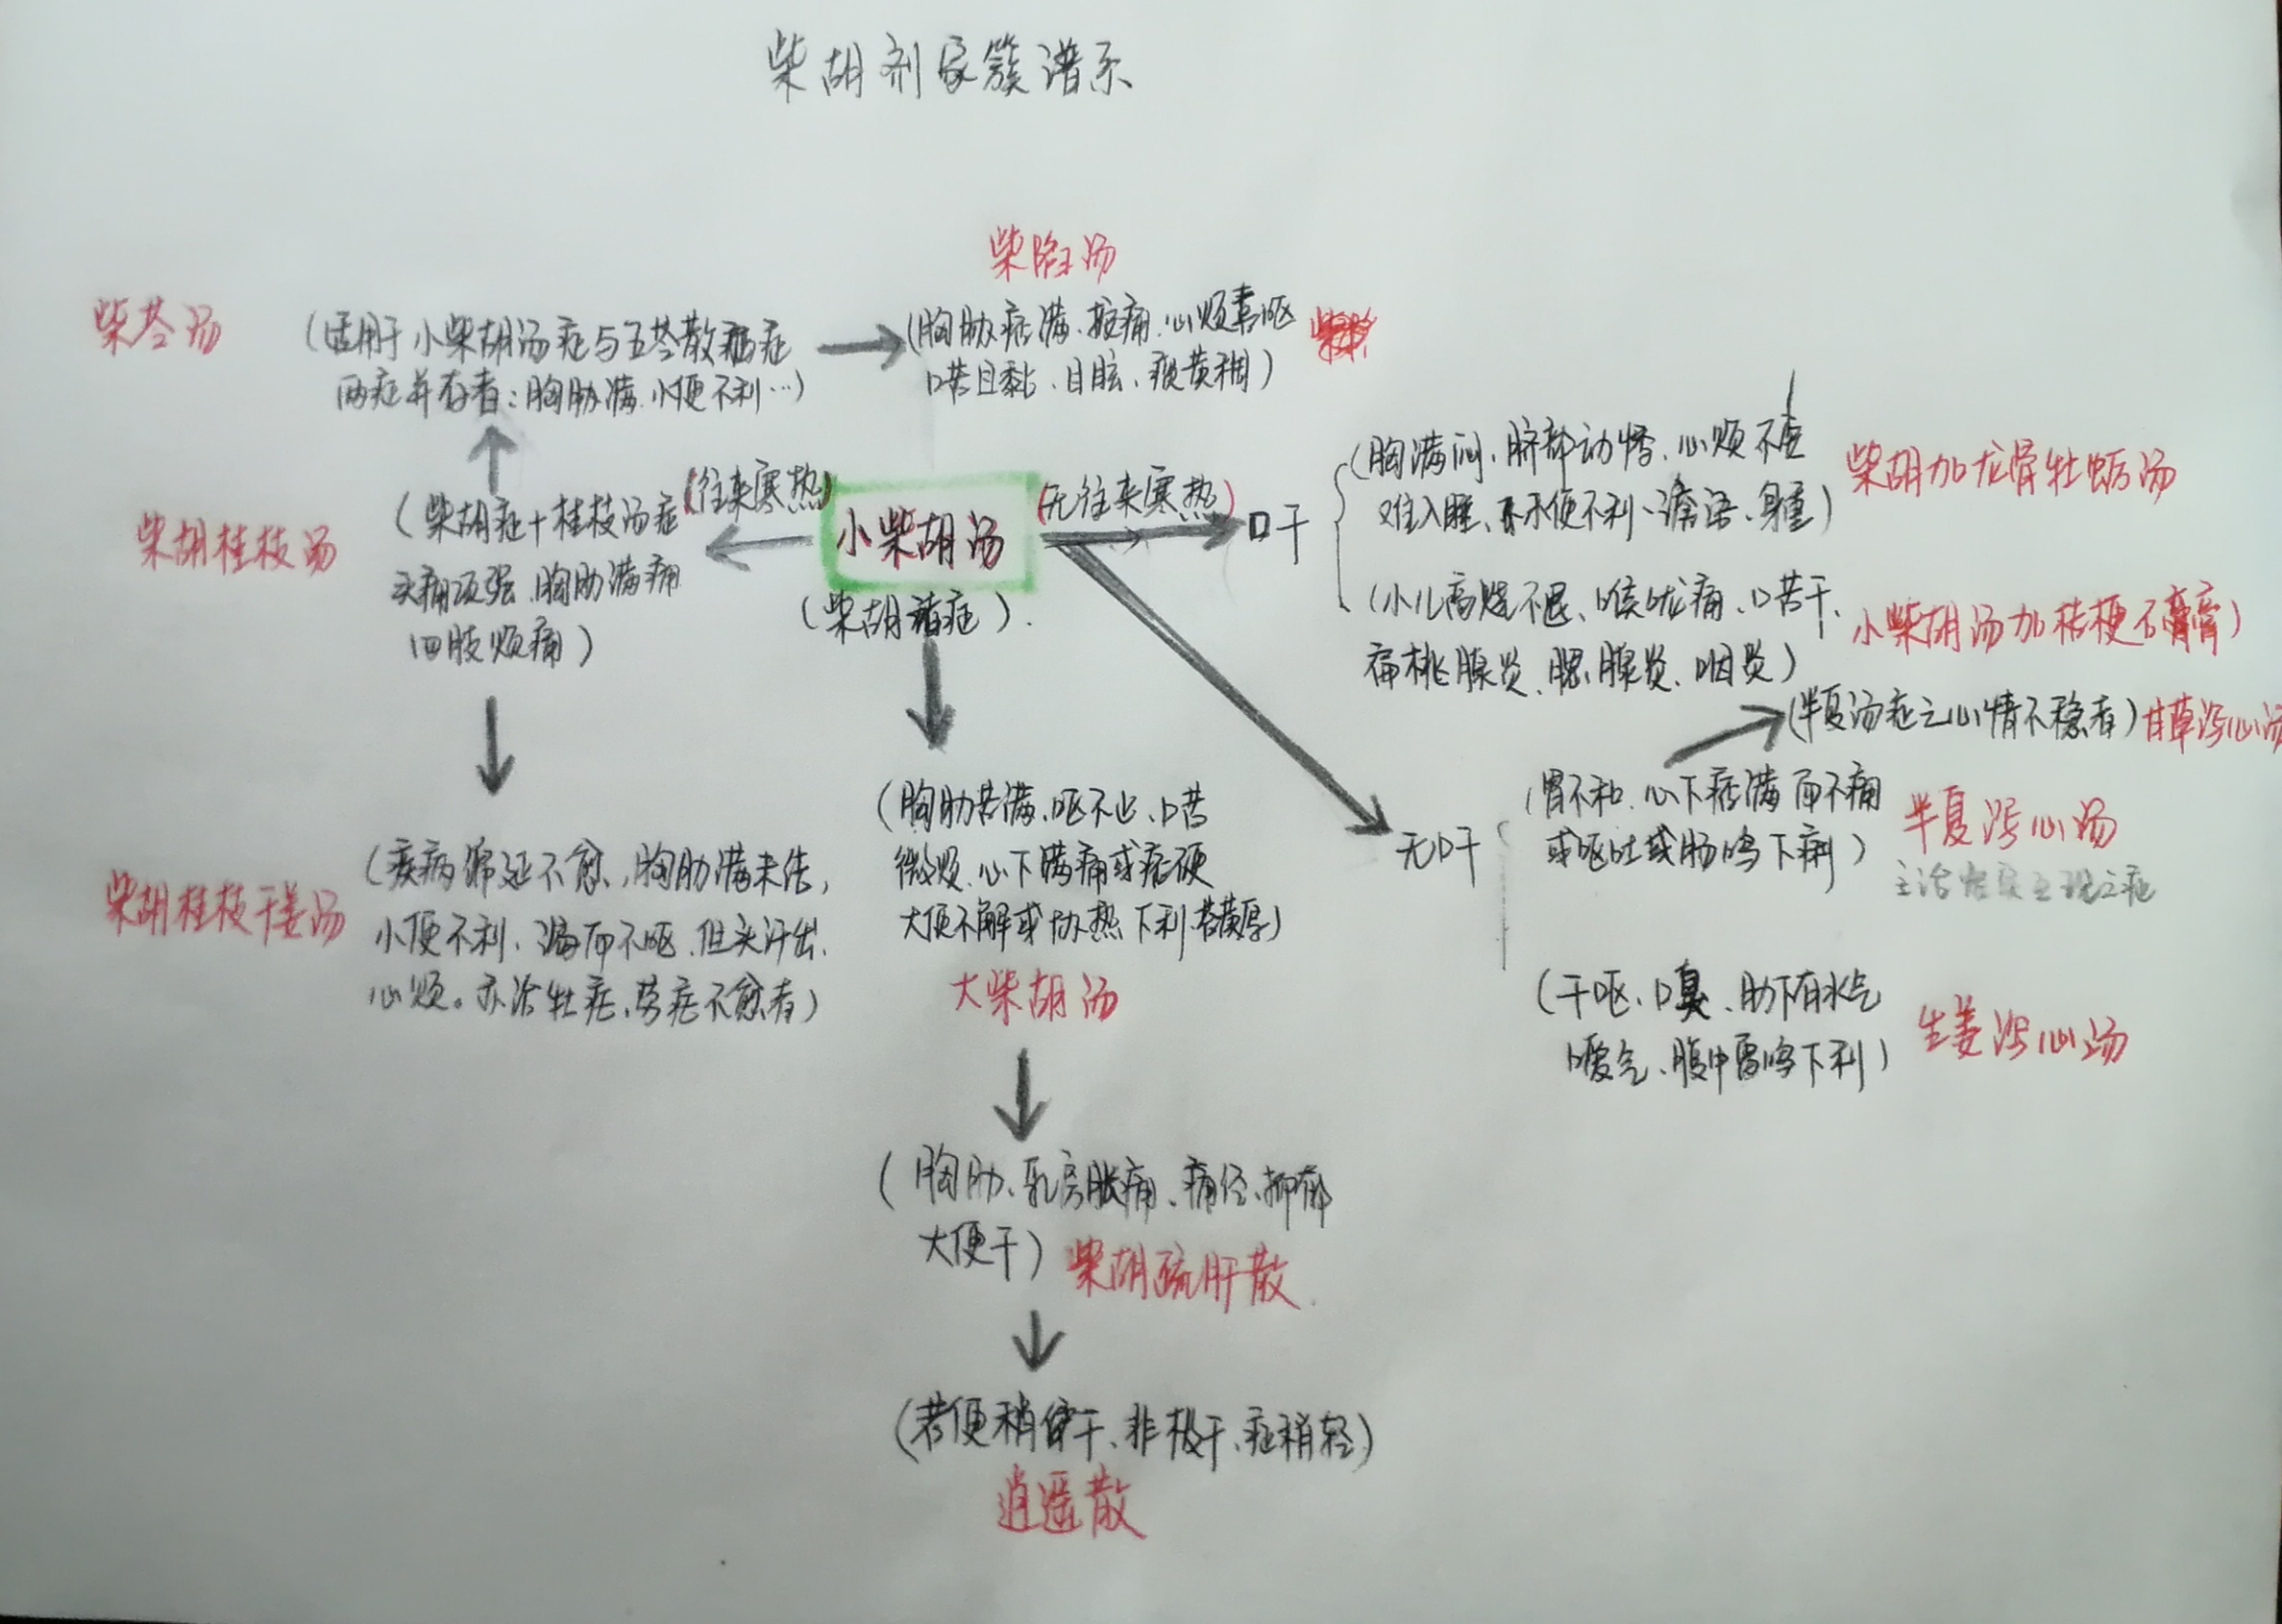 柴胡剂家簇谱系
柴陷汤
柴苓汤
(适用于小柴胡汤症与五苓散症
两症并存者:胸胁满、小便不利…)
(胸胁痞满、按痛、心烦喜呕
口苦且黏、目眩、痰黄稠)
柴胡桂枝汤
(柴胡症+桂枝汤症
头痛项强、胸胁满痛
四肢烦痛)
(往来寒热)
小柴胡汤
(柴胡诸症).
(无往来寒热)
口干
(胸满闷、脐部动悸、心烦不
难入睡、小便不利、谵语、身重)
柴胡加龙骨牡蛎汤
(小儿高烧不退、喉咙痛、口苦干、
扁桃腺炎、腮腺炎、咽炎)
小柴胡汤加桔梗石膏)
(半夏汤症之心情不稳者)
甘草泻心汤
无口干
(胃不和、心下痞满而不痛
或呕吐或肠鸣下痢)
半夏泻心汤
主治
(干呕、口臭、胁下有水气
嗳气、腹中雷鸣下利)
生姜泻心汤
柴胡桂枝干姜汤
(疾病缠延不愈,胸胁满未结,
小便不利、渴而不呕、但头汗出、
心烦。亦治牡症、劳症不愈者)
(胸胁苦满、呕不止、口苦
微烦、心下满痛或痞硬
大便不解或协热下利、苔黄厚)
大柴胡汤
(胸胁、乳房胀痛、痛经、抑郁
大便干)
柴胡疏肝散
(若便稍偏干、非极干、症稍轻)
逍遥散